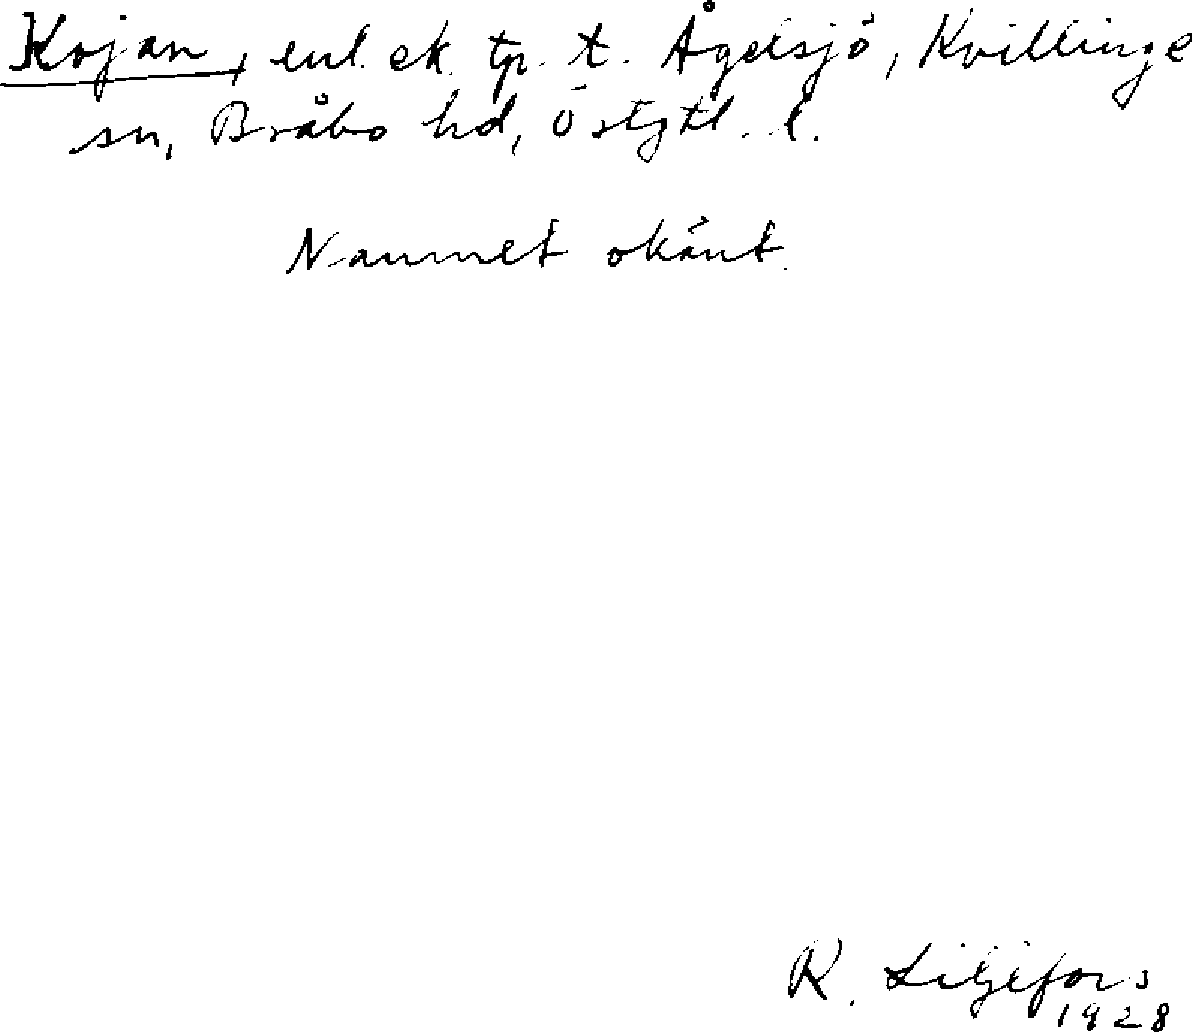 Kojan, enl. ek. tp. t. Ågelsjö, Kvillinge
sn, Bråbo hd, Östgtl. l.
Namnet okänt.
R. Liljefors
1928